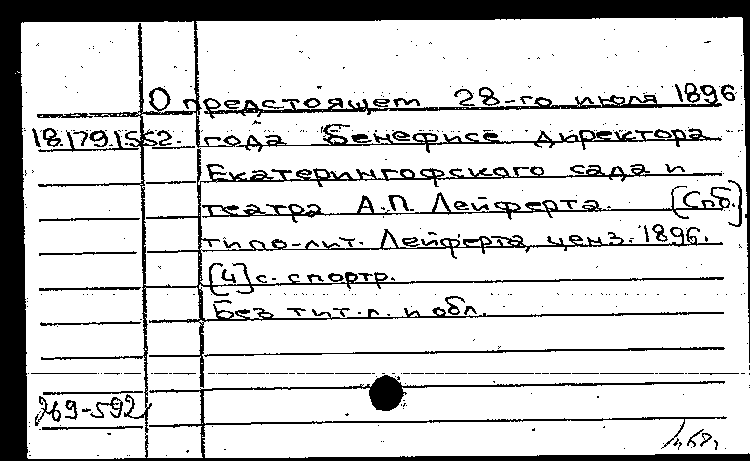 О предстоящем 28-го июля 1896
18.179.1552. года бенефисе директора
Екатерингофского сада и
театра А.П. Лейферта. [Спб.]
типо-лит. Лейферта, ценз. 1896.
[4] с. с портр.
Без тит. л. и обл.
269-592